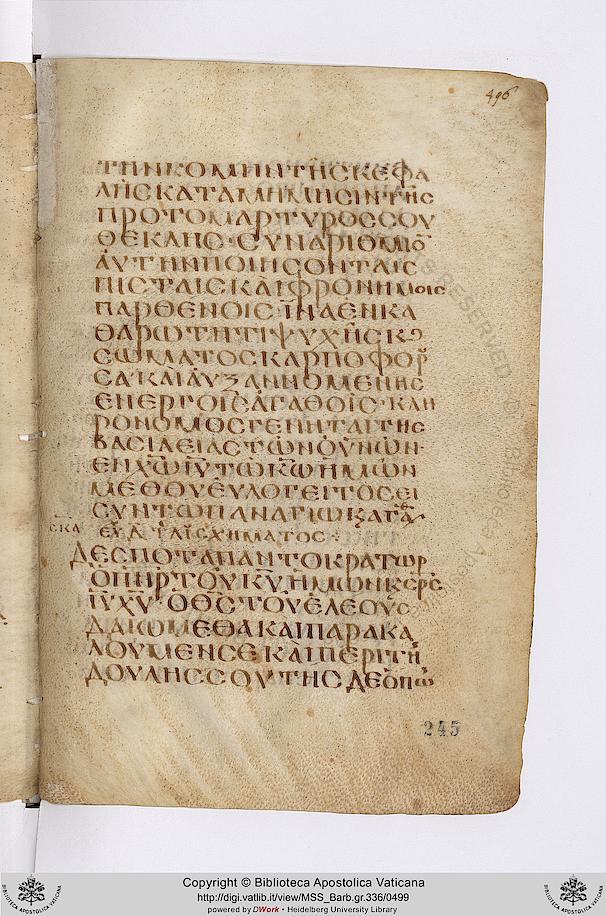 496
ΤΗΝΚΟΜΗΝΤΗΣΚΕΦΑ
ΛΗΣΚΑΤΑΜΙΜΗΣΙΝΤΗΣ
ΠΡΟΤΟΜΑΡΤΥΡΟΣΣΟΥ
ΘΕΚΛΗΣ·ΣΥΝΑΡΙΘΜΙΟ̄
ΑΥΤΗΝΠΟΙΗΣΟΝΤΑΙΣ
ΠΙΣΤΑΙΣΚΑΙΦΡΟΝΗΜΟΙΣ
ΠΑΡΘΕΝΟΙΣ·ΙΝΑΕΝΚΑ
ΘΑΡΩΤΗΤΙΨΥΧΗΣΚϨ
ΣΩΜΑΤΟΣΚΑΡΠΟΦΟΡ
ΣΑΚΑΙΑΥΞΑΝΝΟΜΕΝΗΣ
ΕΝΕΡΓΟΙΣΑΓΑΘΟΙΣ·ΚΛΗ
ΡΟΝΟΜΟΣΓΕΝΗΤΑΙΤΗΣ
ΒΑΣΙΛΕΙΑΣΤΩΝΟΥΝΩΝ·
ΕΝΧ̅Ω̅Ι̅Υ̅ΤΩΚ̅Ω̅ΗΜΩΝ
ΜΕΘΟΥΕΥΛΟΓΕΙΤΟΣΕΙ
ΣΥΝΤΩΠΑΝΑΓΙΩΚΑΓΑ
ΣΚΑ ΕΥΧ ΤΛΙΣΧΙΜΑΤΟΣ
ΔΕΣΠΟΤΑΠΑΝΤΟΚΡΑΤΩΡ
Ο̅Π̅Η̅Ρ̅ΤΟΥΚ̅Υ̅ΗΜΩΝΚΣΡΣ
Ι̅Υ̅Χ̅Υ̅·ΟΘ̅Σ̅ΤΟΥΕΛΕΟΥΣ
ΔΑΙΩΜΕΘΑΚΑΙΠΑΡΑΚΑ
ΛΟΥΜΕΝΣΕΚΑΙΠΕΡΙΤΗ
ΔΟΥΛΗΣΣΟΥΤΗΣΔΕΟΠΩ
245
Copyright © Biblioteca Apostolica Vaticana
http://digi.vatlib.it/view/MSS_Barb.gr.336/0499
powered by DWork • Heidelberg University Library